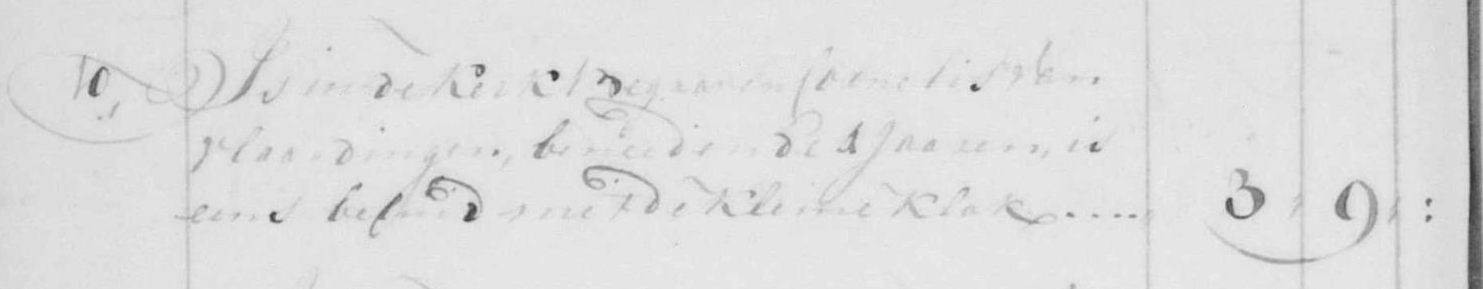 10, Is in de Kerk Begraven Cornelis Van
Vlaardingen, beneeden de 1 Jaaren, is
eens beluid met de Kleine Klok..... 3 : 9 :